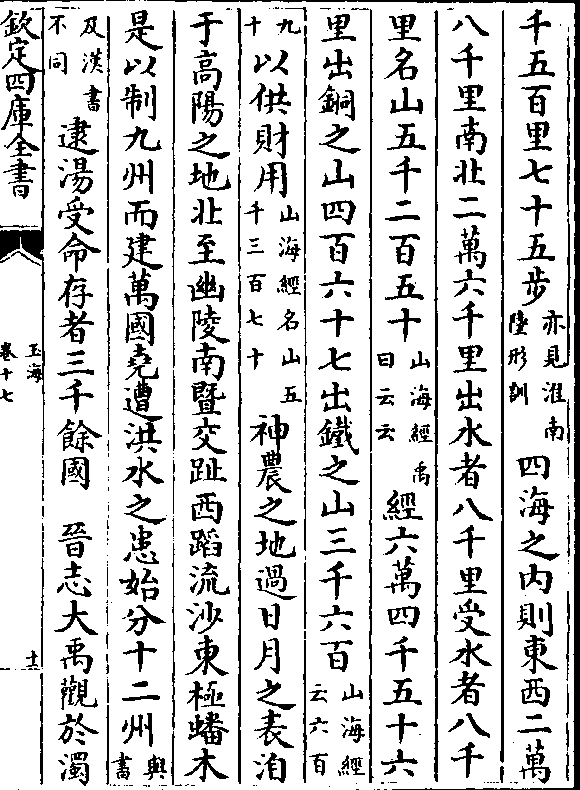 千五百里七十五步亦見淮南陸形訓四海之内則東西二萬
八千里南北二萬六千里出水者八千里受水者八千
里名山五千二百五十山海經禹曰云云經六萬四千五十六
里出銅之山四百六十七出鐵之山三千六百山海經云六百
九十以供財用山海經名山五千三百七十神農之地過日月之表洎
于高陽之地北至幽陵南暨交趾西蹈流沙東極蟠木
是以制九州而建萬國堯遭洪水之患始分十二州與書
及漢書不同逮湯受命存者三千餘國 晉志大禹觀於濁
欽定四庫全書
玉海
卷十七
十二